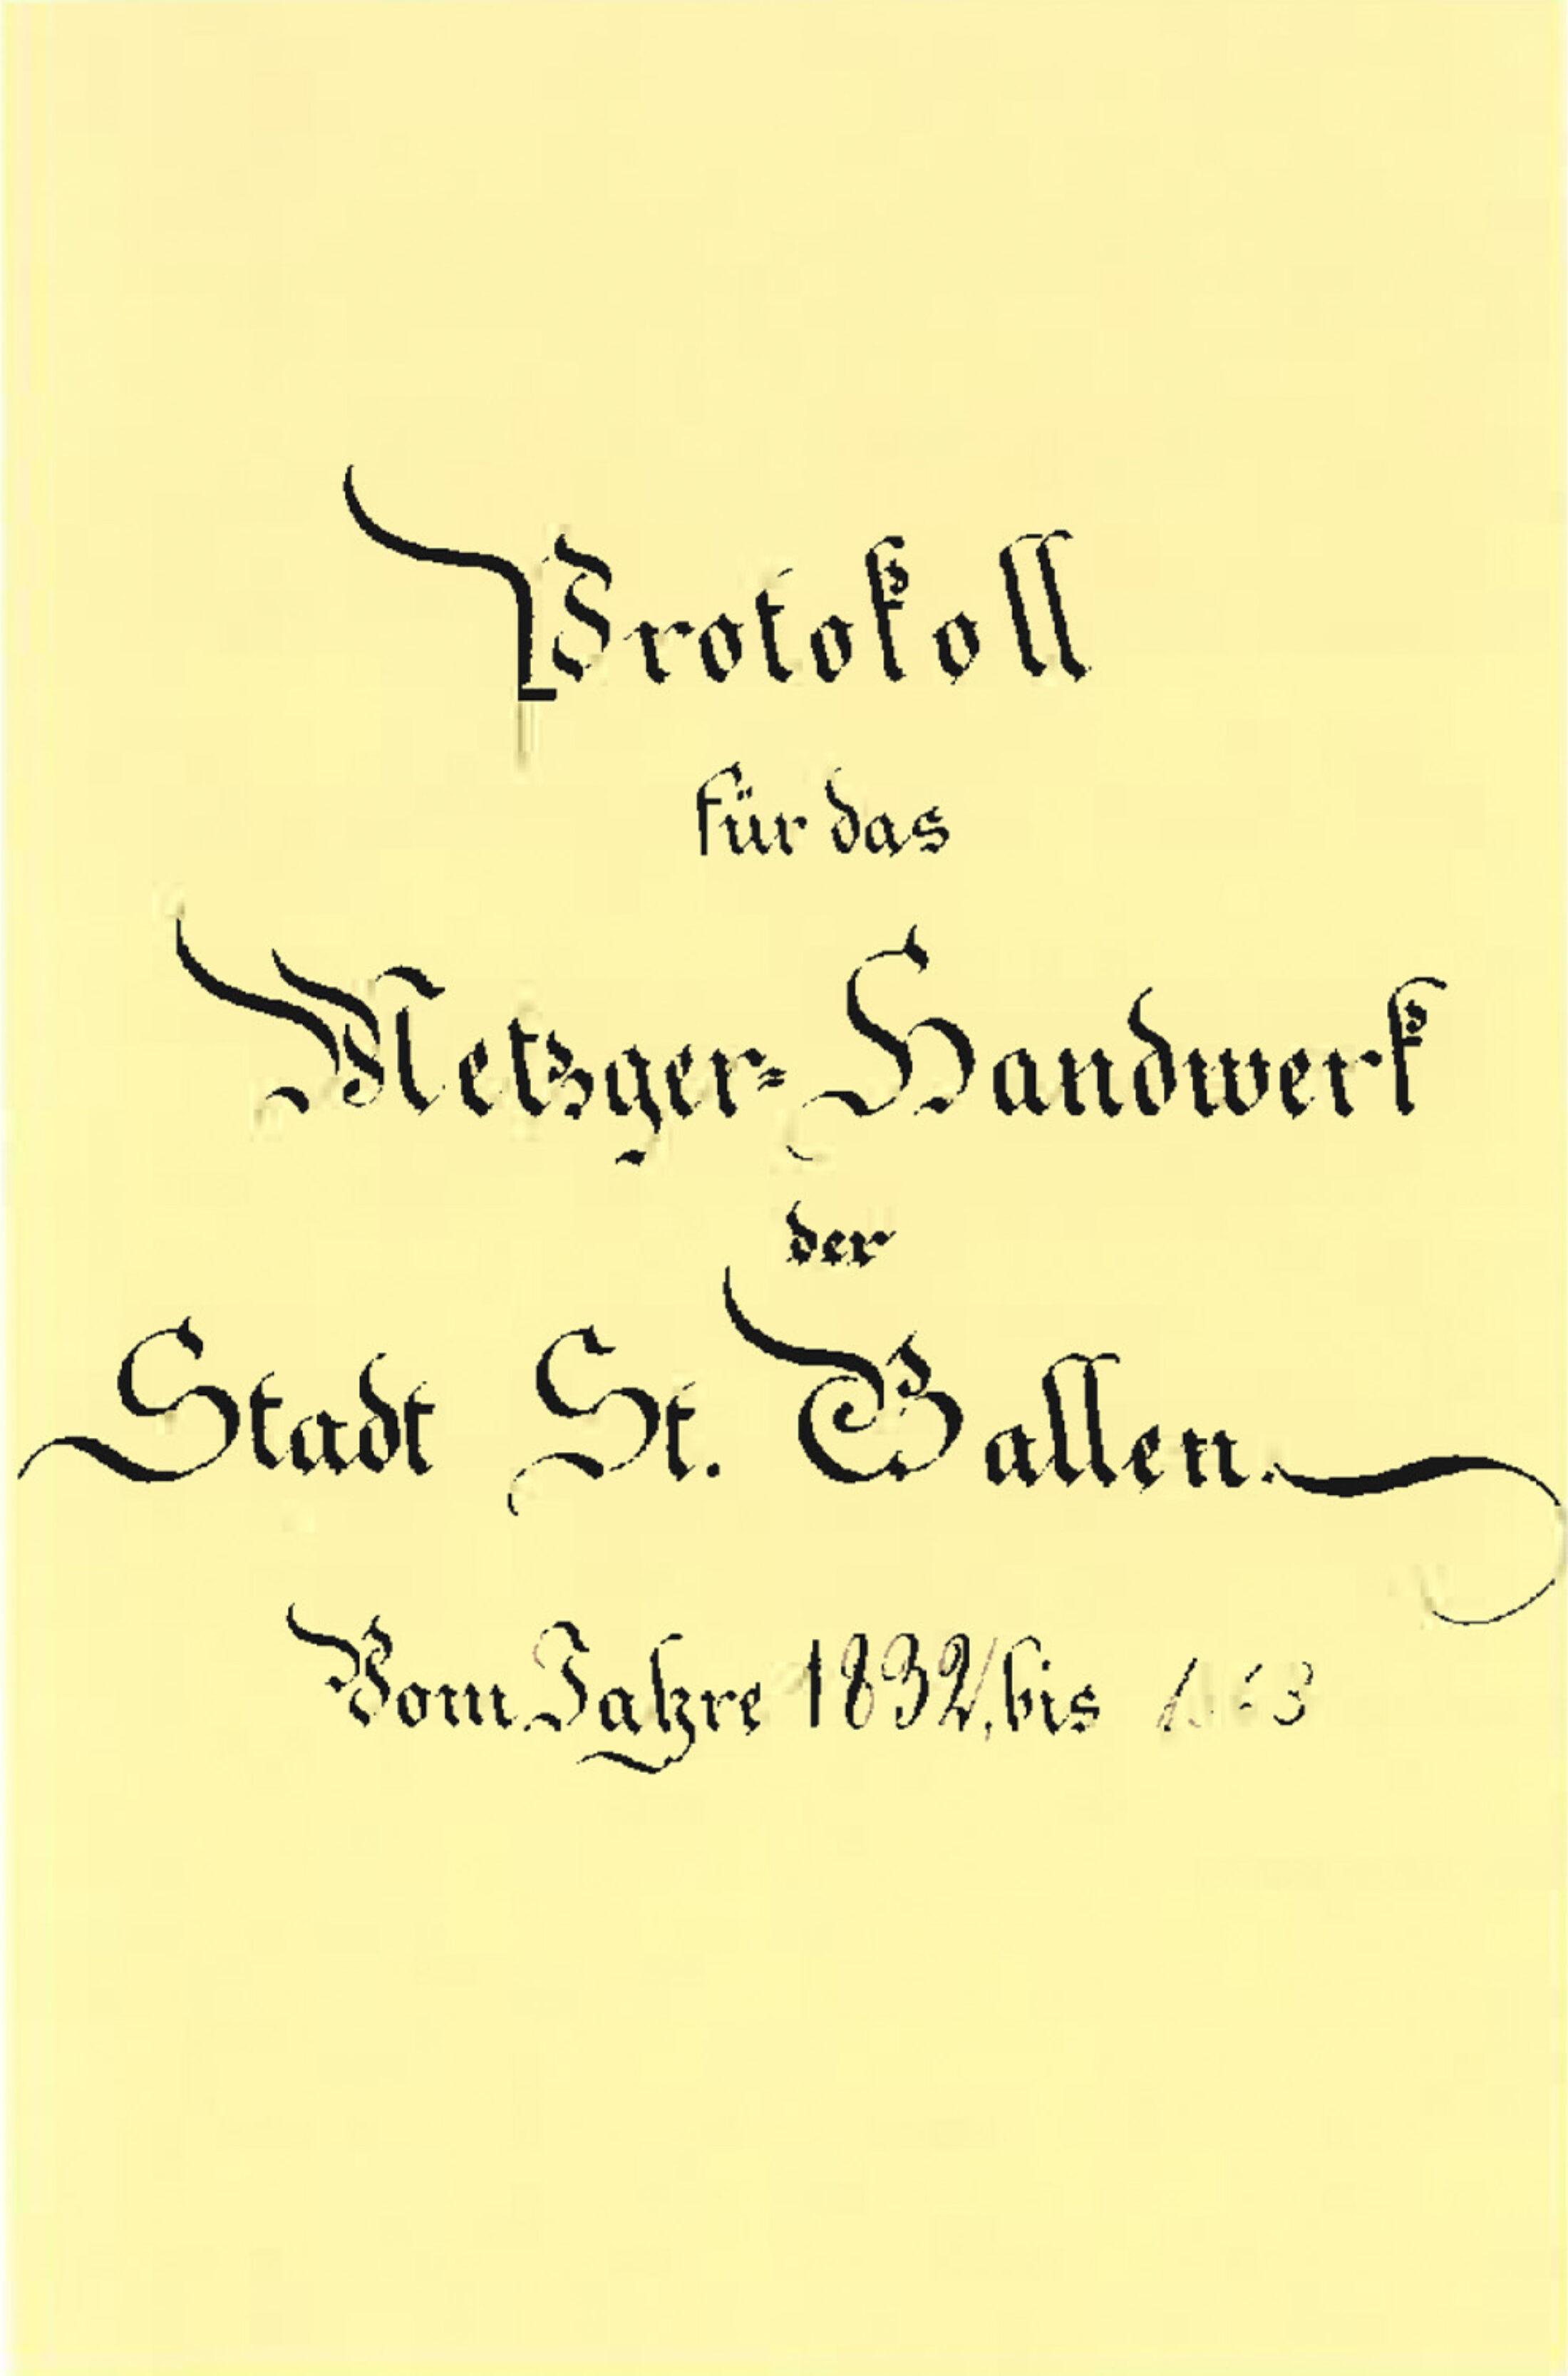 Protokoll
für das
Metzger-Handwerk
der
Stadt St. Gallen.
Vom Jahre 1832, bis